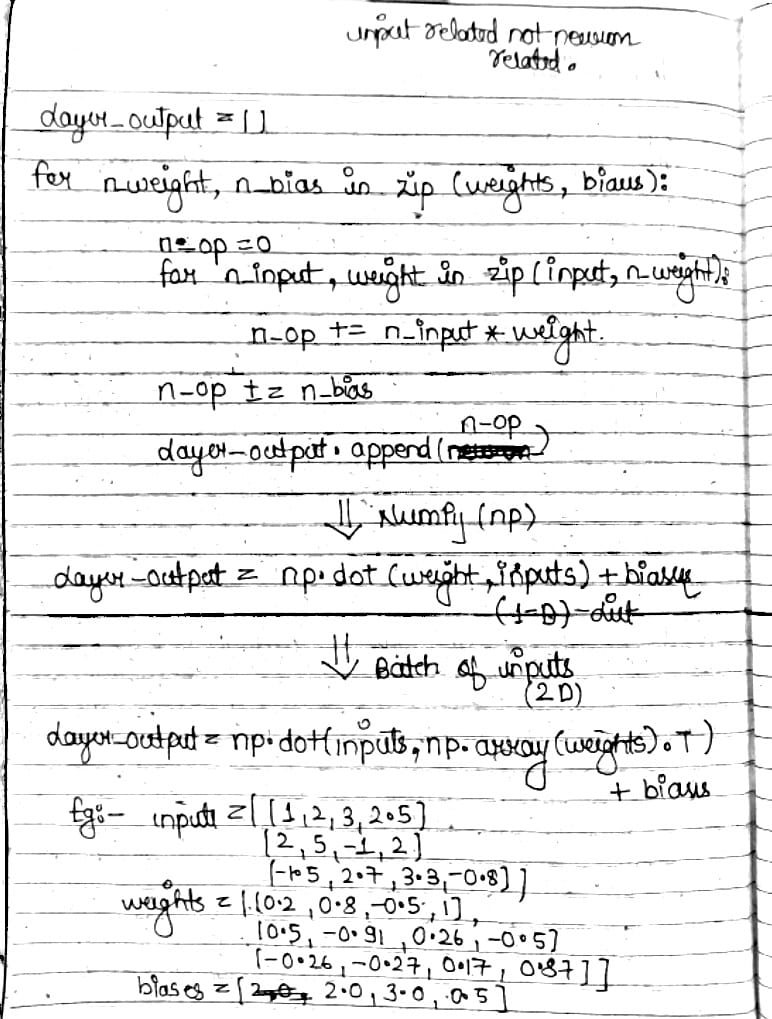 input related not neuron
related.
layer_output = []
for n_weight, n_bias in zip (weights, biases):
n_op = 0
for n_input, weight in zip (input, n_weight):
n_op += n_input * weight.
n_op += n_bias
n_op
layer_output. append( )
⇓ Numpy (np)
layer_output = np.dot (weight, inputs) + biases
(1-D)-list
⇓ Batch of inputs
(2D)
layer_output = np.dot(inputs, np.array(weights).T)
+ biases
Eg:- inputs = [[1,2,3,2.5]
[2,5,-1,2]
[-1.5, 2.7, 3.3, -0.8]]
weights = [[0.2, 0.8, -0.5, 1],
[0.5, -0.91, 0.26, -0.5]
[-0.26, -0.27, 0.17, 0.87]]
biases = [2.0, 3.0, 0.5]